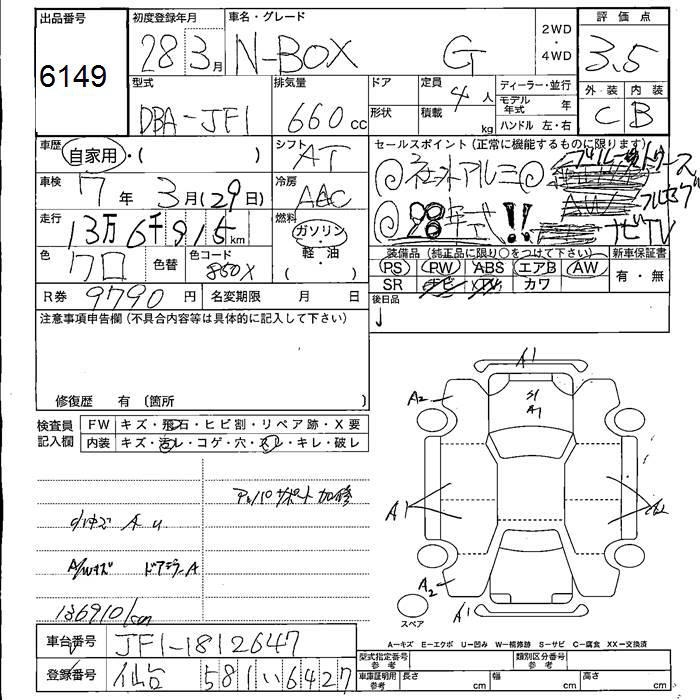 出品番号 初度登録年月 車名・グレード 2WD ・ 4WD 評価点
6149 28 3月 N-BOX G 3.5
型式 排気量 ドア 定員 4人 ディーラー・並行 外装 内装
DBA-JF1 660cc 形状 積載 kg モデル年式 年 C B
ハンドル 左・右
車歴 自家用・( ) シフト AT セールスポイント(正常に機能するものに限ります)
車検 7年 3月(29日) 冷房 AAC ◎社外アルミ◎
走行 13万6千915km 燃料 ガソリン・軽・油 ◎28年式!! ナビTV フルセグ
色 クロ 色替 色コード 装備品(純正品に限り○をつけて下さい) 新車保証書
PS PW ABS エアB AW 有・無
SR ナビ カワ
R券 9790円 名変期限 月 日 後日品
注意事項申告欄(不具合内容等は具体的に記入して下さい)
修復歴 有 〔箇所
検査員記入欄 FW キズ・飛石・ヒビ割・リペア跡・X要
内装 キズ・汚レ・コゲ・穴・スレ・キレ・破レ
A1
A2
S1
A1
A1
A2
A1
スペア
136910km
A-キズ E-エクボ U-凹み W-補修跡 S-サビ C-腐食 XX-交換済
車台番号 JF1-1812647 型式指定番号 参考 類別区分番号 参考
登録番号 仙台 581 い 6427 車庫証明用 参考 長さ cm 幅 cm 高さ cm